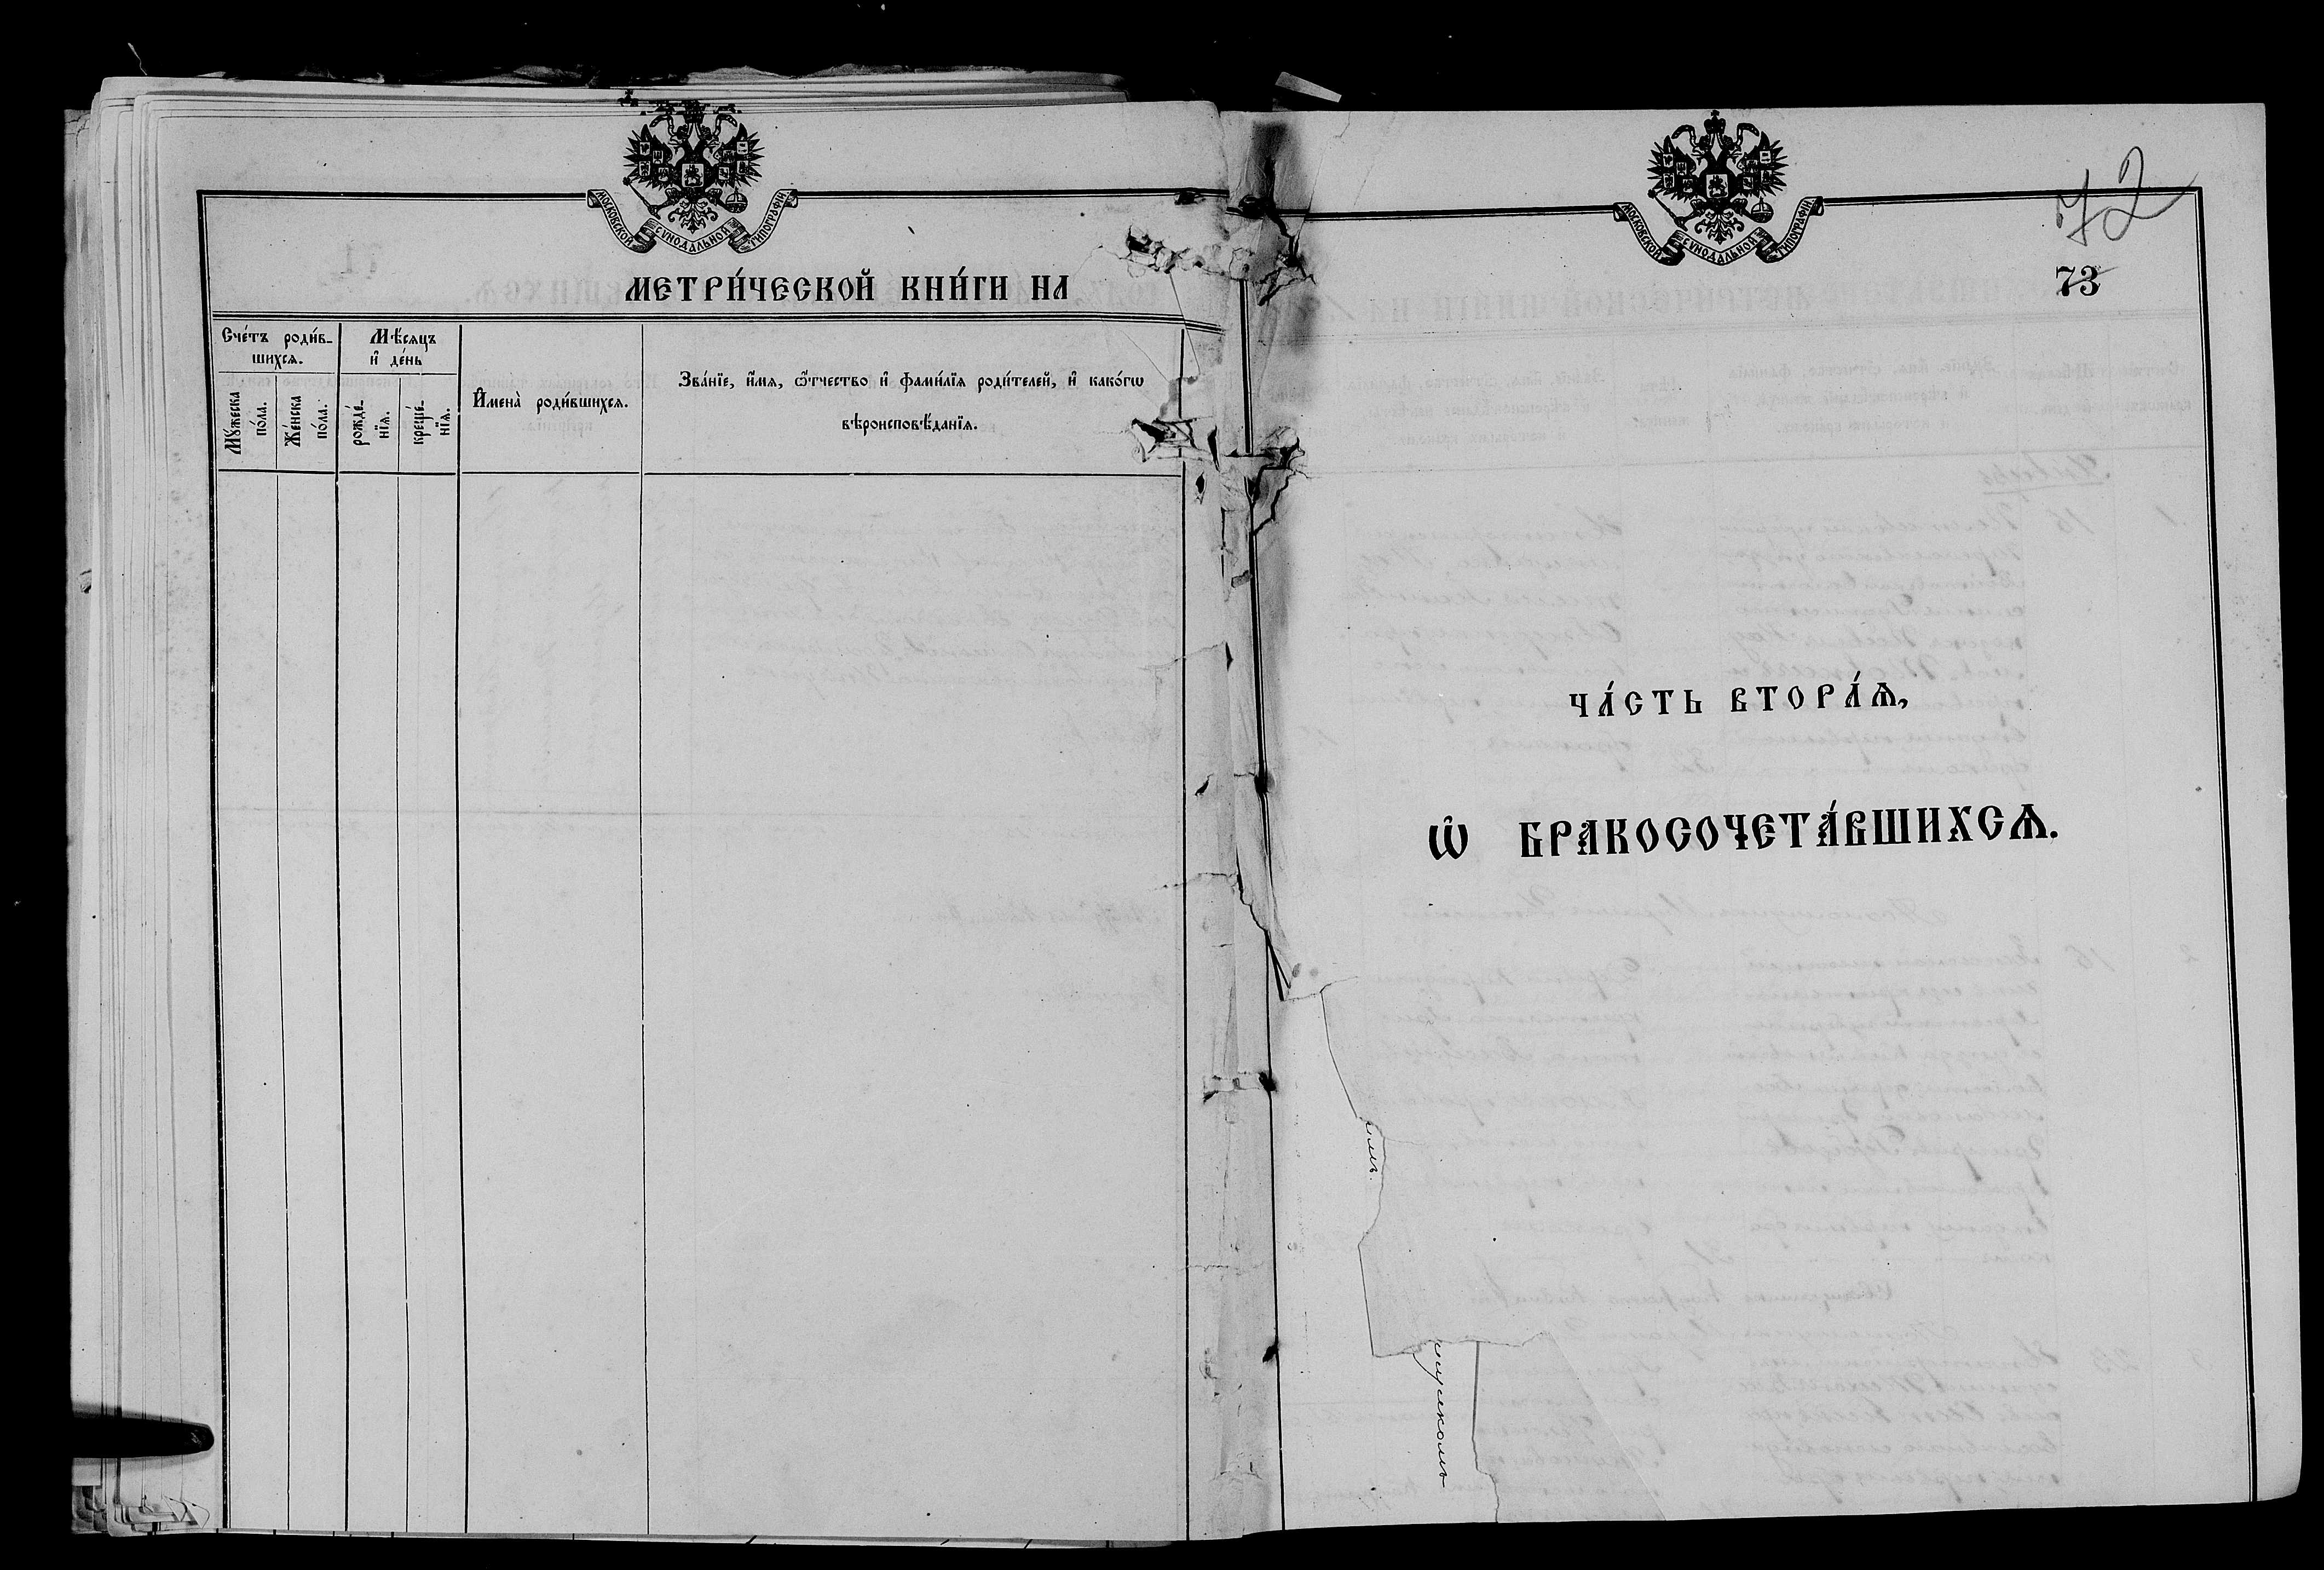 МОСКОВСКОЙ СѴНОДАЛЬНОЙ ТИПОГРАФІИ
МЕТРИ́ЧЕСКОЙ КНИ́ГИ НА
Сче́тъ роди́в-
шихсѧ.
Мѣ́сѧцъ
и҆ де́нь
И҆мена̀ роди́вшихсѧ.
Зва́нїе, и҆́мѧ, ѻ҆́тчество и҆ фами́лїѧ роди́телей, и҆ како́гѡ
вѣроисповѣ́данїѧ.
Мꙋ́жеска
по́ла.
Же́нска
по́ла.
рожде́-
нїѧ.
креще́-
нїѧ.
МОСКОВСКОЙ СѴНОДАЛЬНОЙ ТИПОГРАФІИ
72
73
ЧА́СТЬ ВТОРА́Ѧ,
Ѽ БРАКОСОЧЕТА́ВШИХСѦ.